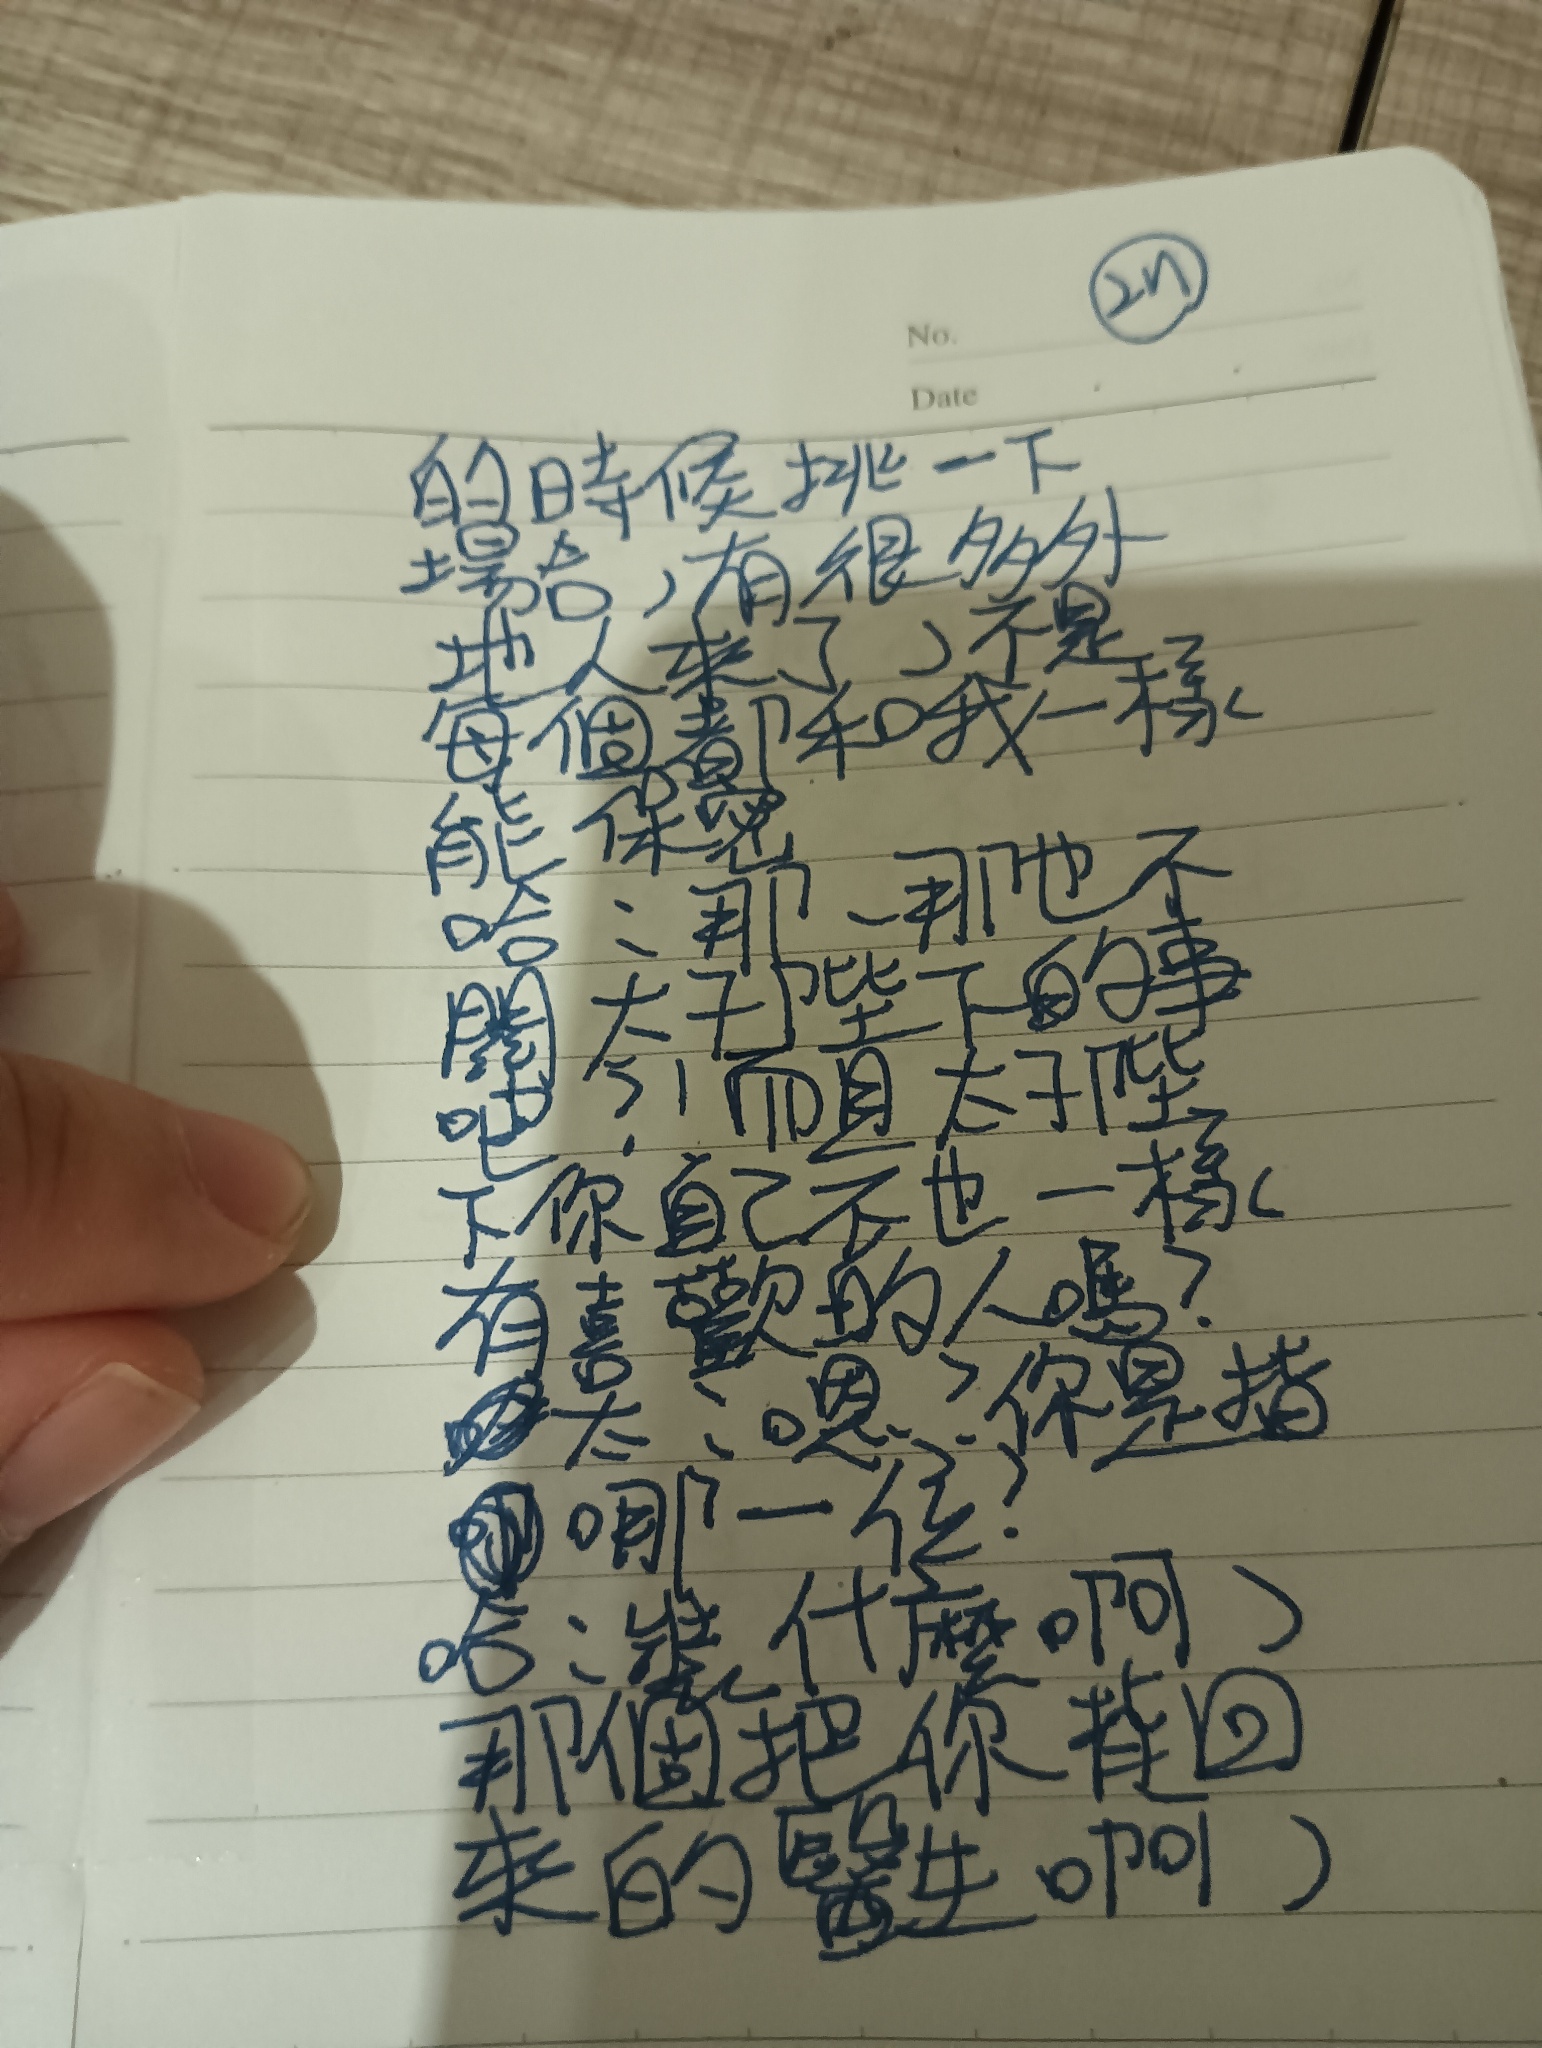 2n
No.
Date
的時候挑一下
場合,有很多外
地人來了,不是
每個都和我一樣
能保密
哈、、那、那也不
關太子陛下的事
吧?!而且太子陛
下你自己不也一樣
有喜歡的人嗎?
太、、嗯?你是指
哪一位?
哈、裝什麼啊,
那個把你揹回
來的醫生啊,